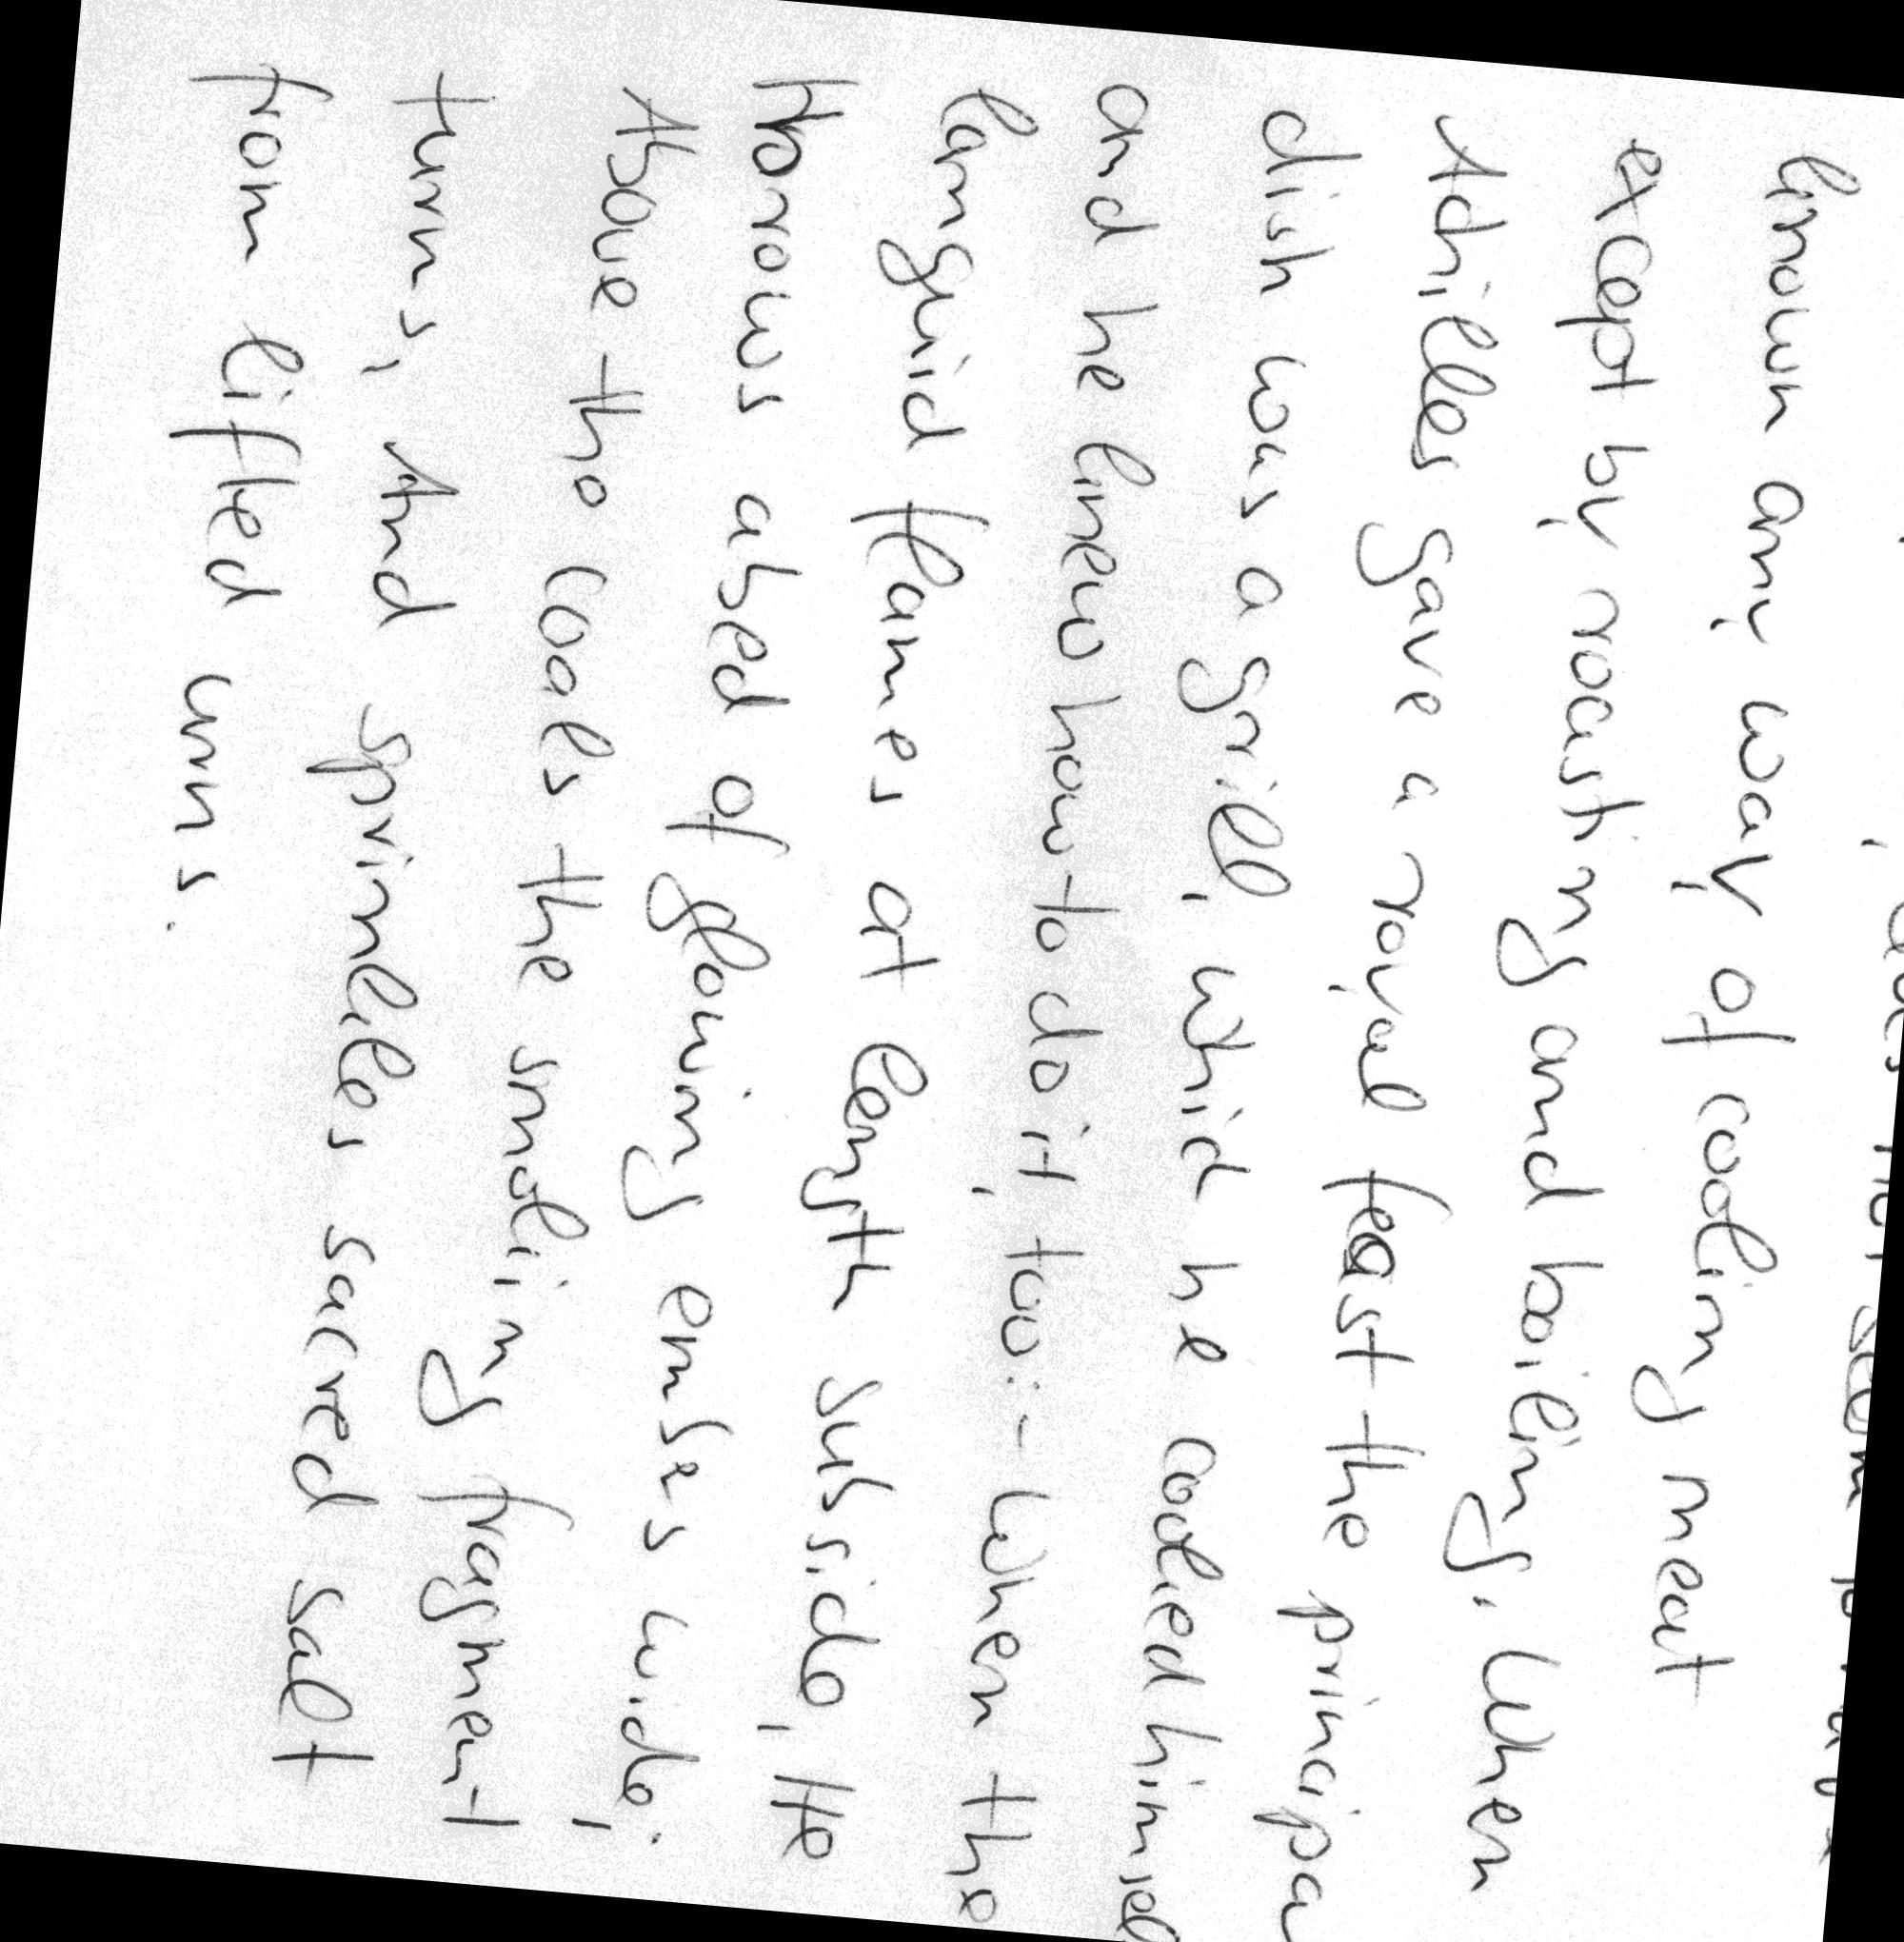 known any way of cooking meat
except by roasting and boiling. When
Achilles gave a royal feast the principa
dish was a grill, which he cooked himsel
and he knew how to do it, too:- When the
languid flames at length subside, He
throws a bed of glowing embers wide,
Above the coals the smoking fragment
turns, And sprinkles sacred salt
from lifted urns.